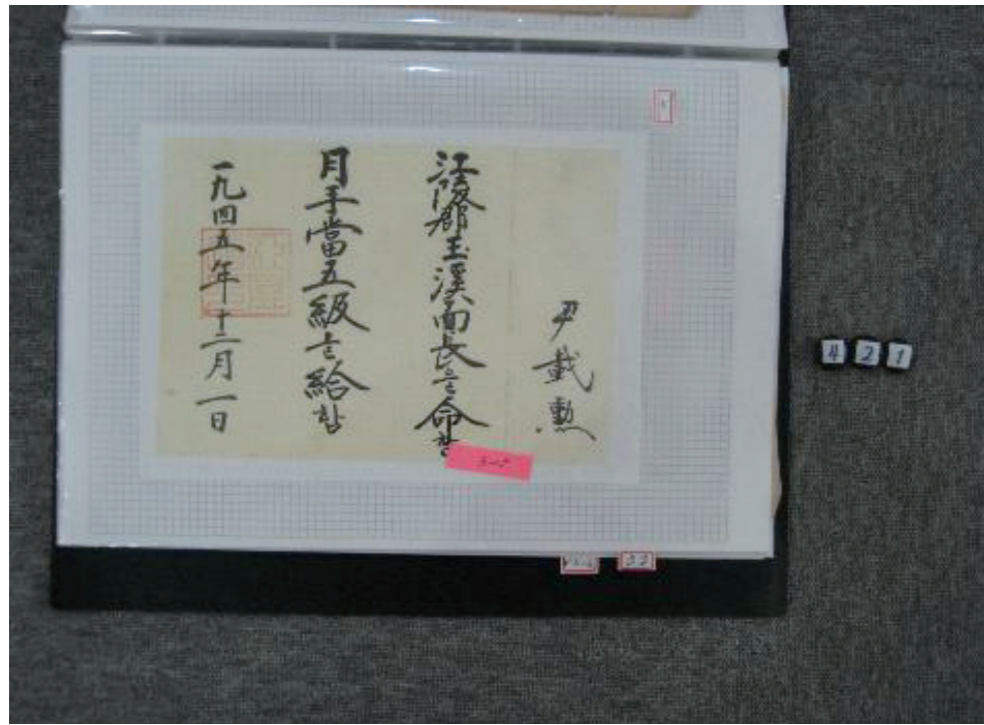 尹載勳
江陵郡玉溪面長을命함
月手當五級을給함
一九四五年十二月一日
4 2 1